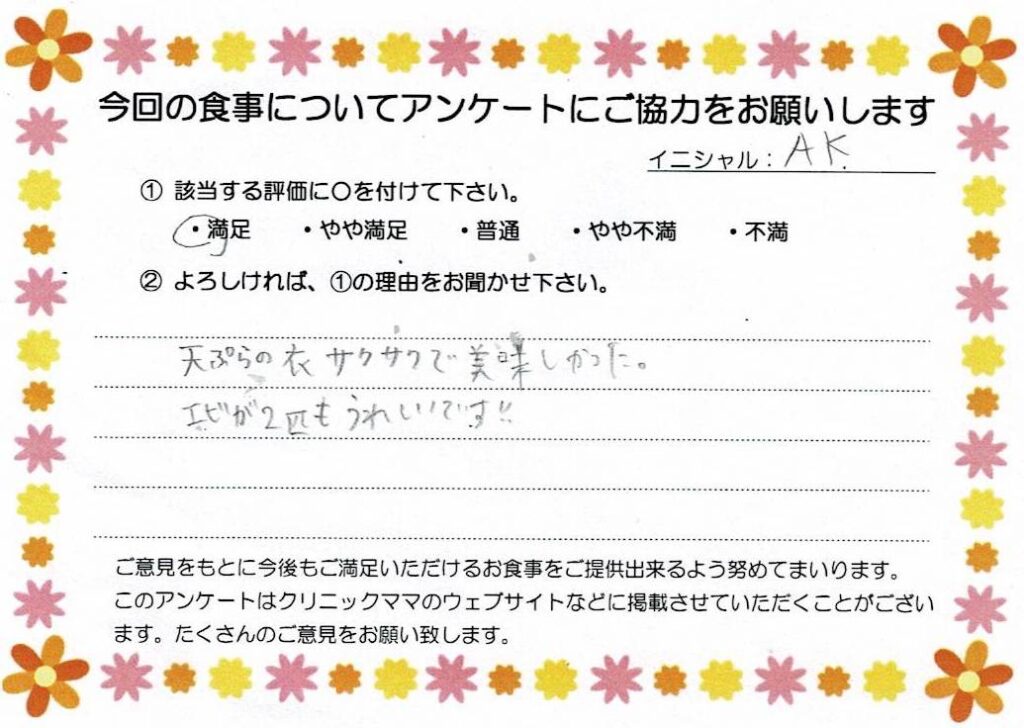 今回の食事についてアンケートにご協力をお願いします
イニシャル：AK
① 該当する評価に〇を付けて下さい。
・満足 ・やや満足 ・普通 ・やや不満 ・不満
② よろしければ、①の理由をお聞かせ下さい。
天ぷらの衣サクサクで美味しかった。
エビが2匹もうれしいです!!
ご意見をもとに今後もご満足いただけるお食事をご提供出来るよう努めてまいります。
このアンケートはクリニックママのウェブサイトなどに掲載させていただくことがござい
ます。たくさんのご意見をお願い致します。